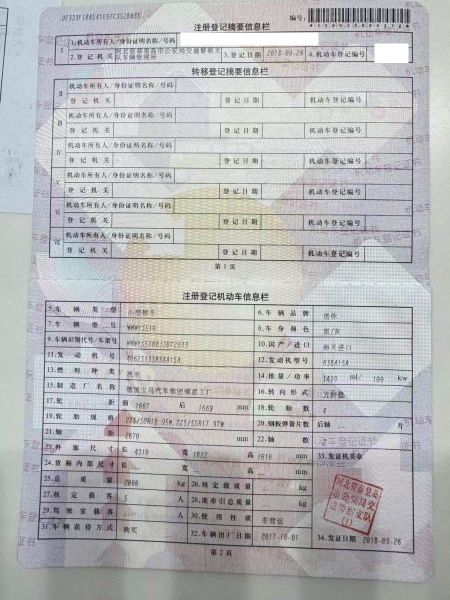 编号:
注册登记摘要信息栏
I 1.机动车所有人/身份证明名称/号码
2.登记机关 河北省秦皇岛市公安局交通警察支队车辆管理所 3.登记日期 2018-09-26 4.机动车登记编号
转移登记摘要信息栏
II 机动车所有人/身份证明名称/号码
登记机关 登记日期 机动车登记编号
III 机动车所有人/身份证明名称/号码
登记机关 登记日期 机动车登记编号
IV 机动车所有人/身份证明名称/号码
登记机关 登记日期 机动车登记编号
V 机动车所有人/身份证明名称/号码
登记机关 登记日期 机动车登记编号
VI 机动车所有人/身份证明名称/号码
登记机关 登记日期 机动车登记编号
VII 机动车所有人/身份证明名称/号码
登记机关 登记日期 机动车登记编号
第1页
注册登记机动车信息栏
5.车辆类型 小型轿车 6.车辆品牌 迷你
7.车辆型号 8.车身颜色 黑/灰
9.车辆识别代号/车架号 10.国产/进口 海关进口
11.发动机号 12.发动机型号 B38A15A
13.燃料种类 汽油 14.排量/功率 1499 ml/ 100 kw
15.制造厂名称 德国宝马汽车集团 16.转向形式 方向盘
17.轮距 前 1667 后 1669 mm 18.轮胎数 4
19.轮胎规格 225/55R18 95W,225/55R17 97W 20.钢板弹簧片数 后轴 片
21.轴距 2670 mm 22.轴数 2
23.外廓尺寸 长 4319 宽 1822 高 1616 mm 33.发证机关章
24.货厢内部尺寸 长 宽 高 mm
25.总质量 2060 kg 26.核定载质量 kg
27.核定载客 5 人 28.准牵引总质量 kg
29.驾驶室载客 人 30.使用性质 非营运
31.车辆获得方式 购买 32.车辆出厂日期 2017-10-01 34.发证日期 2018-09-26
第2页